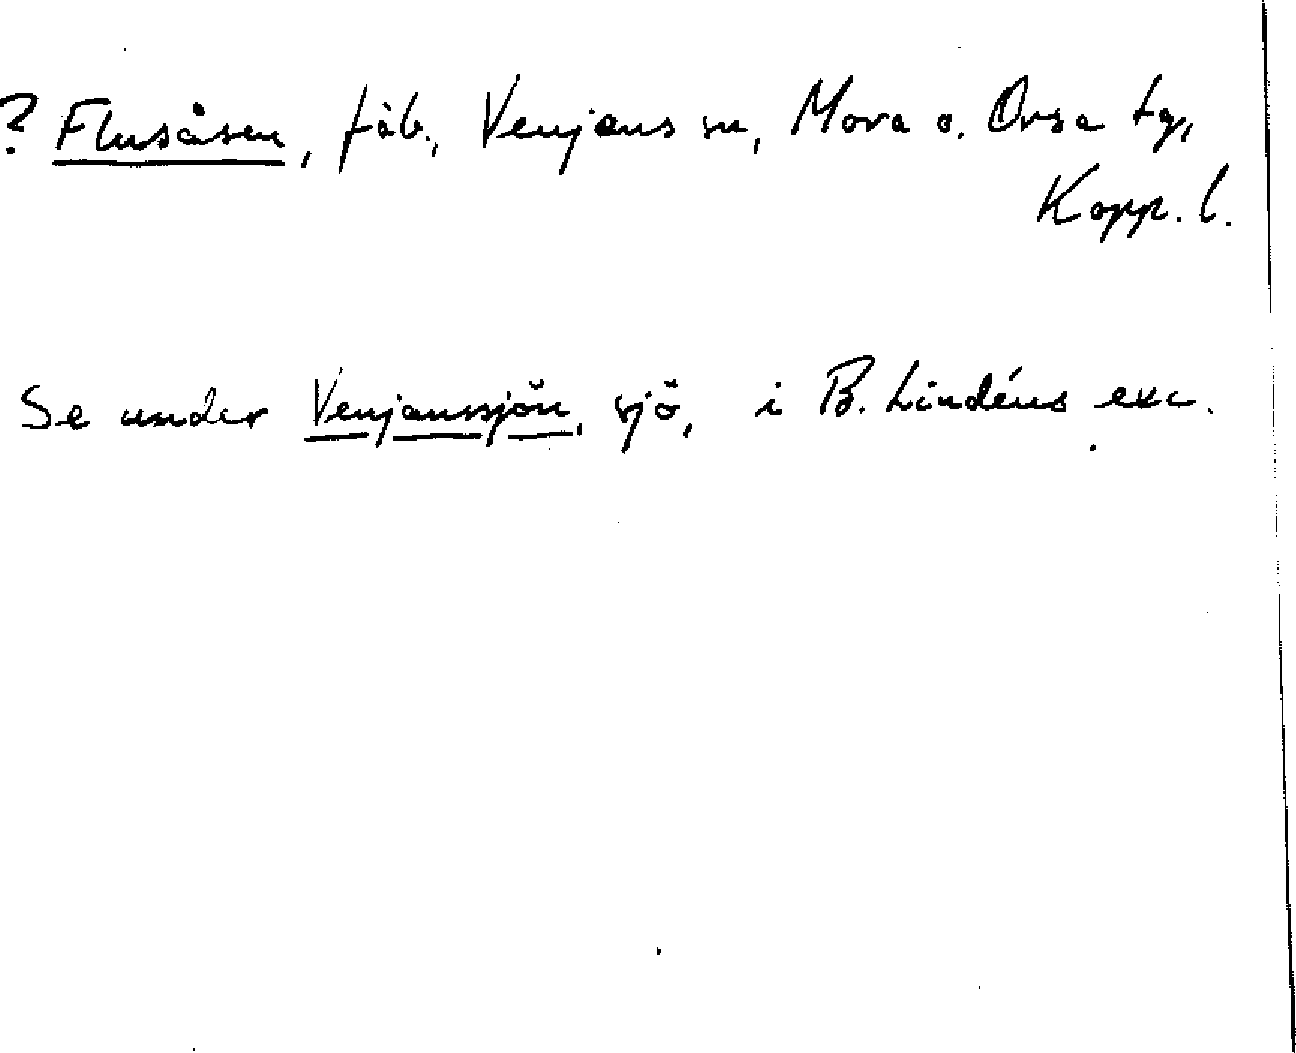 ? Flusåsen, fäb., Venjans sn, Mora o. Orsa tg,
Kopp. l.
Se under Venjanssjön, sjö, i B. Lindéns exc.